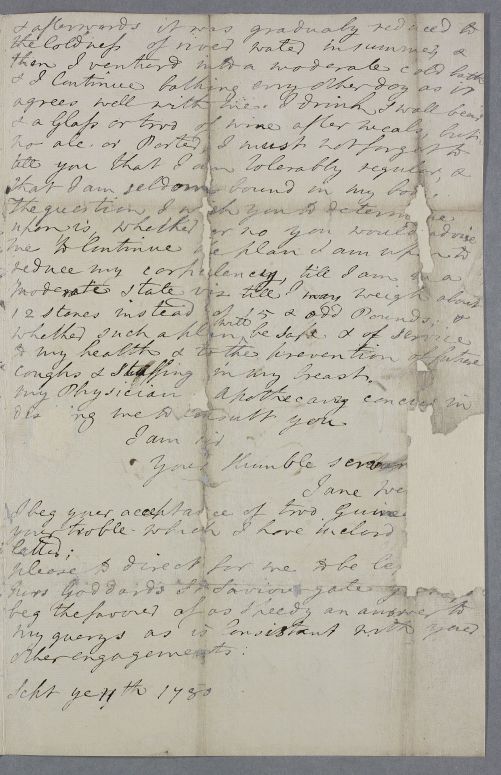 & afterwards it was gradualy reduced to
the Coldness of river water in summer, &
then I venturd into a moderate cold bath
& I Continue bathing every other day as it
agrees well with me. I drink small beer
& a Glass or two of wine after meals, but
no ale. or Porter, I must not forget to
tell you that I am tolerably regular, &
that I am seldom bound in my body.
The question I wish you to determine
upon is, whether or no you would advise
me to Continue the plan I am upon to
reduce my corpulency, till I am in a
moderate state viz till I may weigh about
12 stones instead of 15 & odd Pounds; &
whether such a plan will be safe. & of service
to my health & to the prevention of future
coughs & stuffing in my breast.
my Physician Apothecary concur in
des ng me to consult you
I am sir
Your Humble servan
Jane We
I beg your acceptance of two Guine
your troble. which I have inclosd
letter:
please to direct for me to be le
Mrs Goddards St Saviour gate
beg the favour of as speedy an answer to
my querys as is Consistant with your
other engagements:
Sept ye 11th 1780